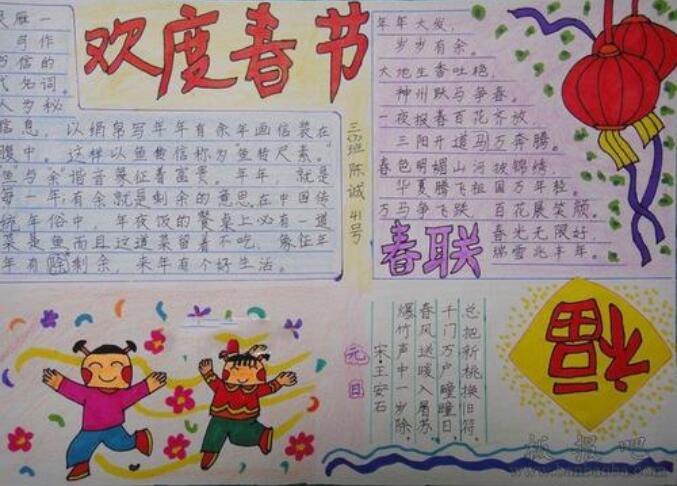 欢度春节
书信的
代名词。
人为秘
信息，以绢帛写年年有余年画信装在
腹中。这样以鱼转信称为"鱼转尺素。"
"鱼与余"谐音象征着富贵。年年，就是
每一年；有余就是剩余的意思，在中国传
统年俗中 年夜饭的餐桌上必有一道
菜是鱼而且这道菜留着不吃，象征年
年有除剩余，来年有个好生活。
三(3)班 陈诚 41号
年年大发，
岁岁有余。
大地生香吐艳，
神州跃马争春。
一夜报春百花齐放，
三阳开道马万奔腾。
春色明媚山河披锦绣，
华夏腾飞祖国万年轻。
万马争飞跃，百花展笑颜。
春光无限好，
瑞雪兆丰年。
春联
元日
宋.王安石
爆竹声中一岁除，
春风送暖入屠苏
千门万户瞳瞳日，
总把新桃换旧符。
福
板报吧
www.banbaoba.com